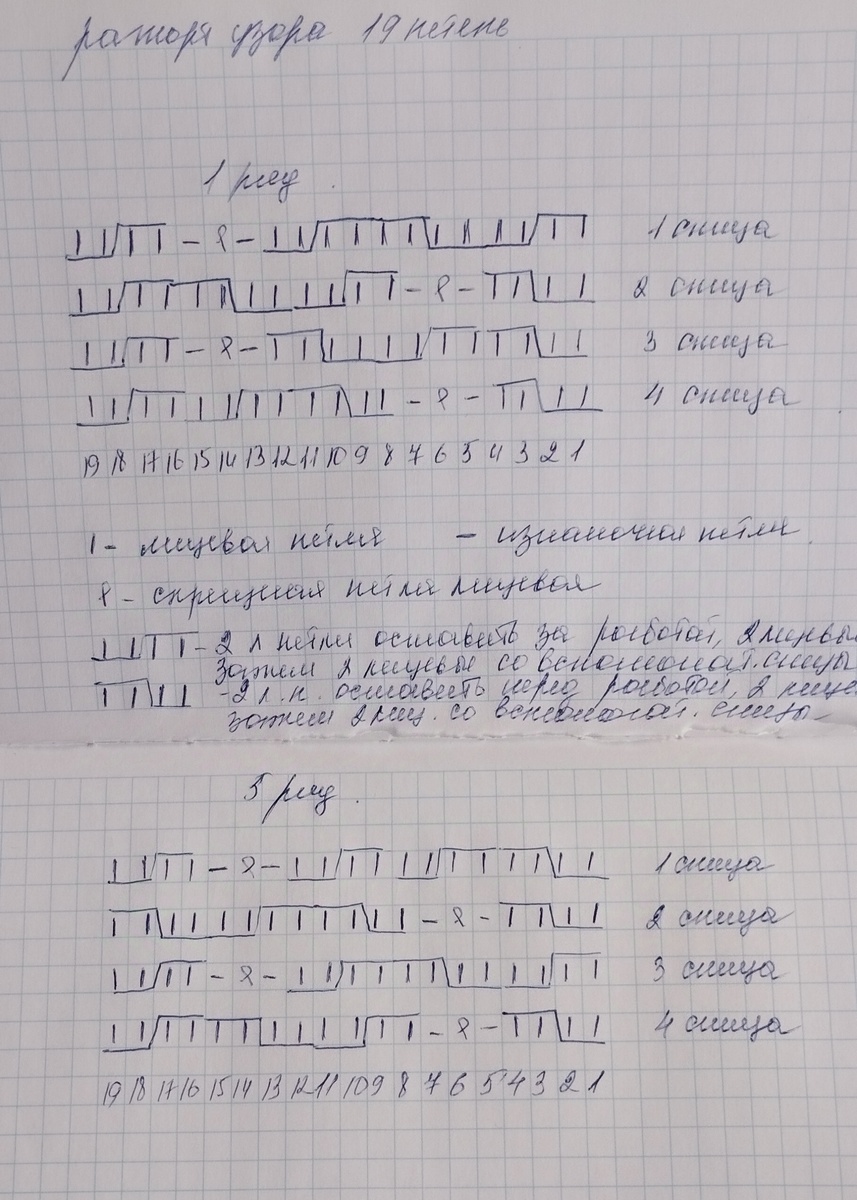 раппорт узора 19 петель
1 ряд.
1 спица
2 спица
3 спица
4 спица
19 18 17 16 15 14 13 12 11 10 9 8 7 6 5 4 3 2 1
I - лицевая петля — - изнаночная петля
- скрещенная петля лицевая
- 2 л петли оставить за работой, 2 лицевы
затем 2 лицевые со вспомогат. спицы
- 2 л.п. оставить перед работой, 2 лице
затем 2 лиц. со вспомогат. спицы
5 ряд.
1 спица
2 спица
3 спица
4 спица
19 18 17 16 15 14 13 12 11 10 9 8 7 6 5 4 3 2 1